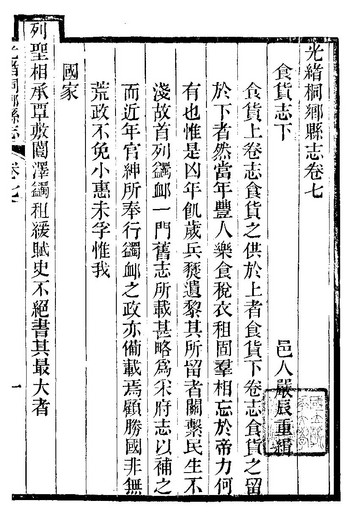 光緒桐鄉縣志卷七
食貨志下
邑人嚴辰重輯
食貨上卷志食貨之供於上者食貨下卷志食貨之留
於下者然當年豐人樂食稅衣租固羣相忘於帝力何
有也惟是凶年飢歲兵燹遺黎其所留者關繫民生不
淺故首列蠲卹一門舊志所載甚略爲采府志以補之
而近年官紳所奉行蠲卹之政亦備載焉顧勝國非無
荒政不免小惠未孚惟我
國家
列聖相承覃敷闓澤蠲租緩賦史不絕書其最大者
光緒桐鄉縣志
卷七
一